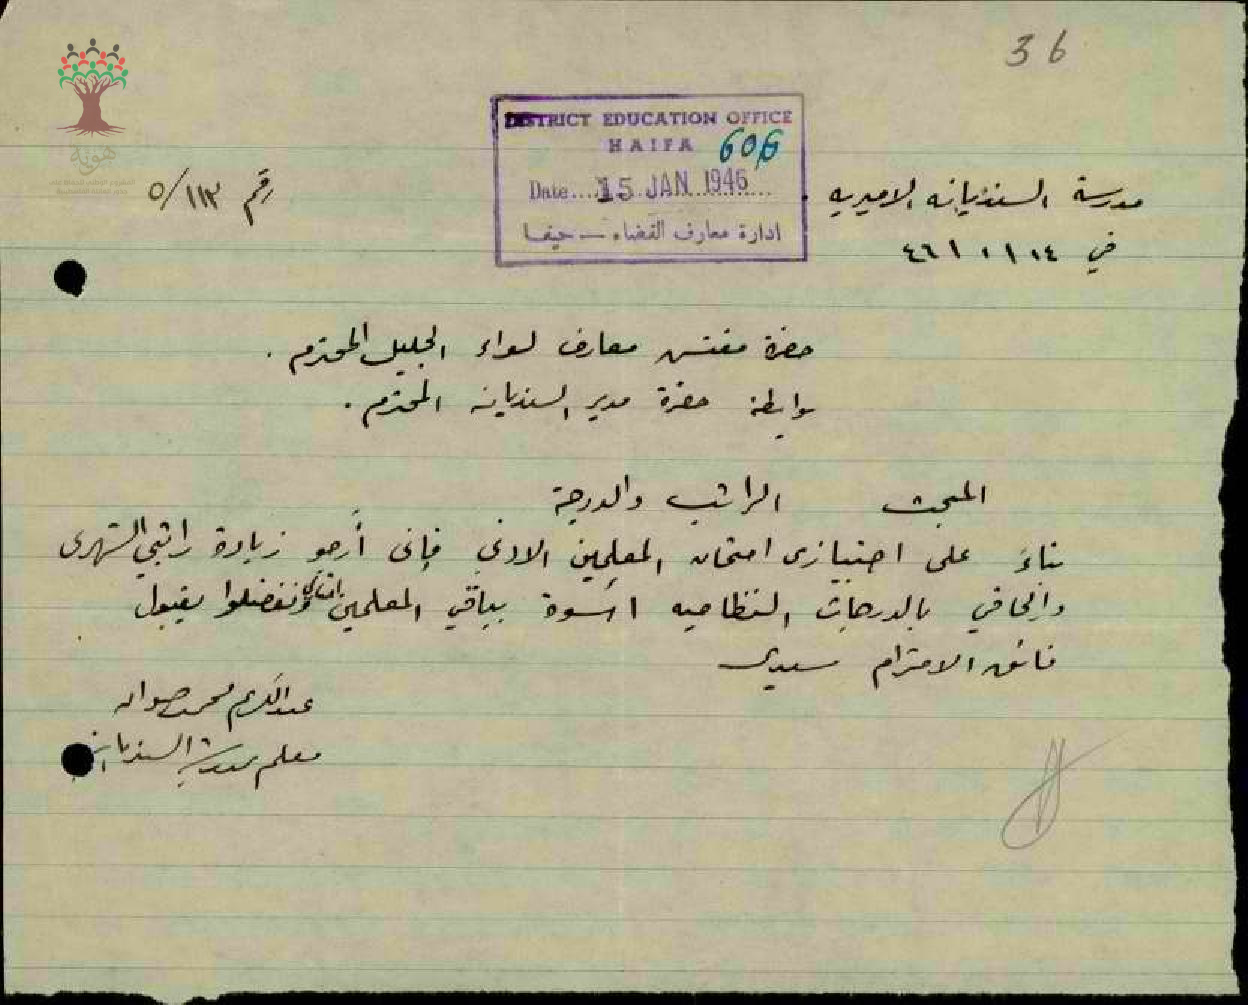 36
DISTRICT EDUCATION OFFICE
HAIFA 606
Date.... 15 JAN 1946
ادارة معارف القضاء — حيفا
هوية
مدرسة السنديانه الاميريه
رقم ١١٣/٥
في ١٤ / ١ / ٤٦
حضرة مفتش معارف لواء الجليل المحترم .
بواسطة حضرة مدير السنديانه المحترم .
المبحث الراتب والدرجة
بناءً على اجتيازى امتحان المعلمين الادنى فإنى أرجو زيادة راتبي الشهرى
والحاقي بالدرجات النظاميه اسوة بباقي المعلمين وتفضلوا بقبول
فائق الاحترام سيدي
عبد الكريم محمد
معلم بمدرسة السنديانه